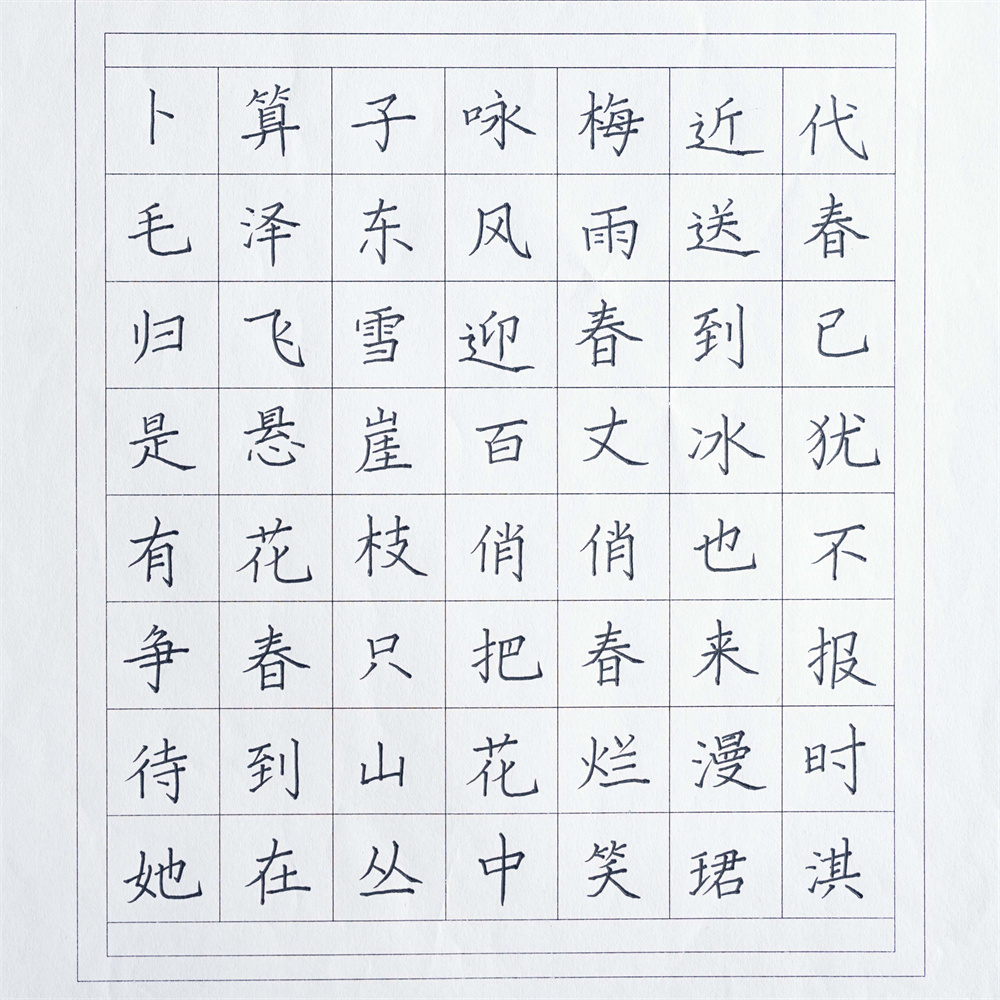 卜算子咏梅近代
毛泽东风雨送春
归飞雪迎春到已
是悬崖百丈冰犹
有花枝俏俏也不
争春只把春来报
待到山花烂漫时
她在丛中笑珺淇